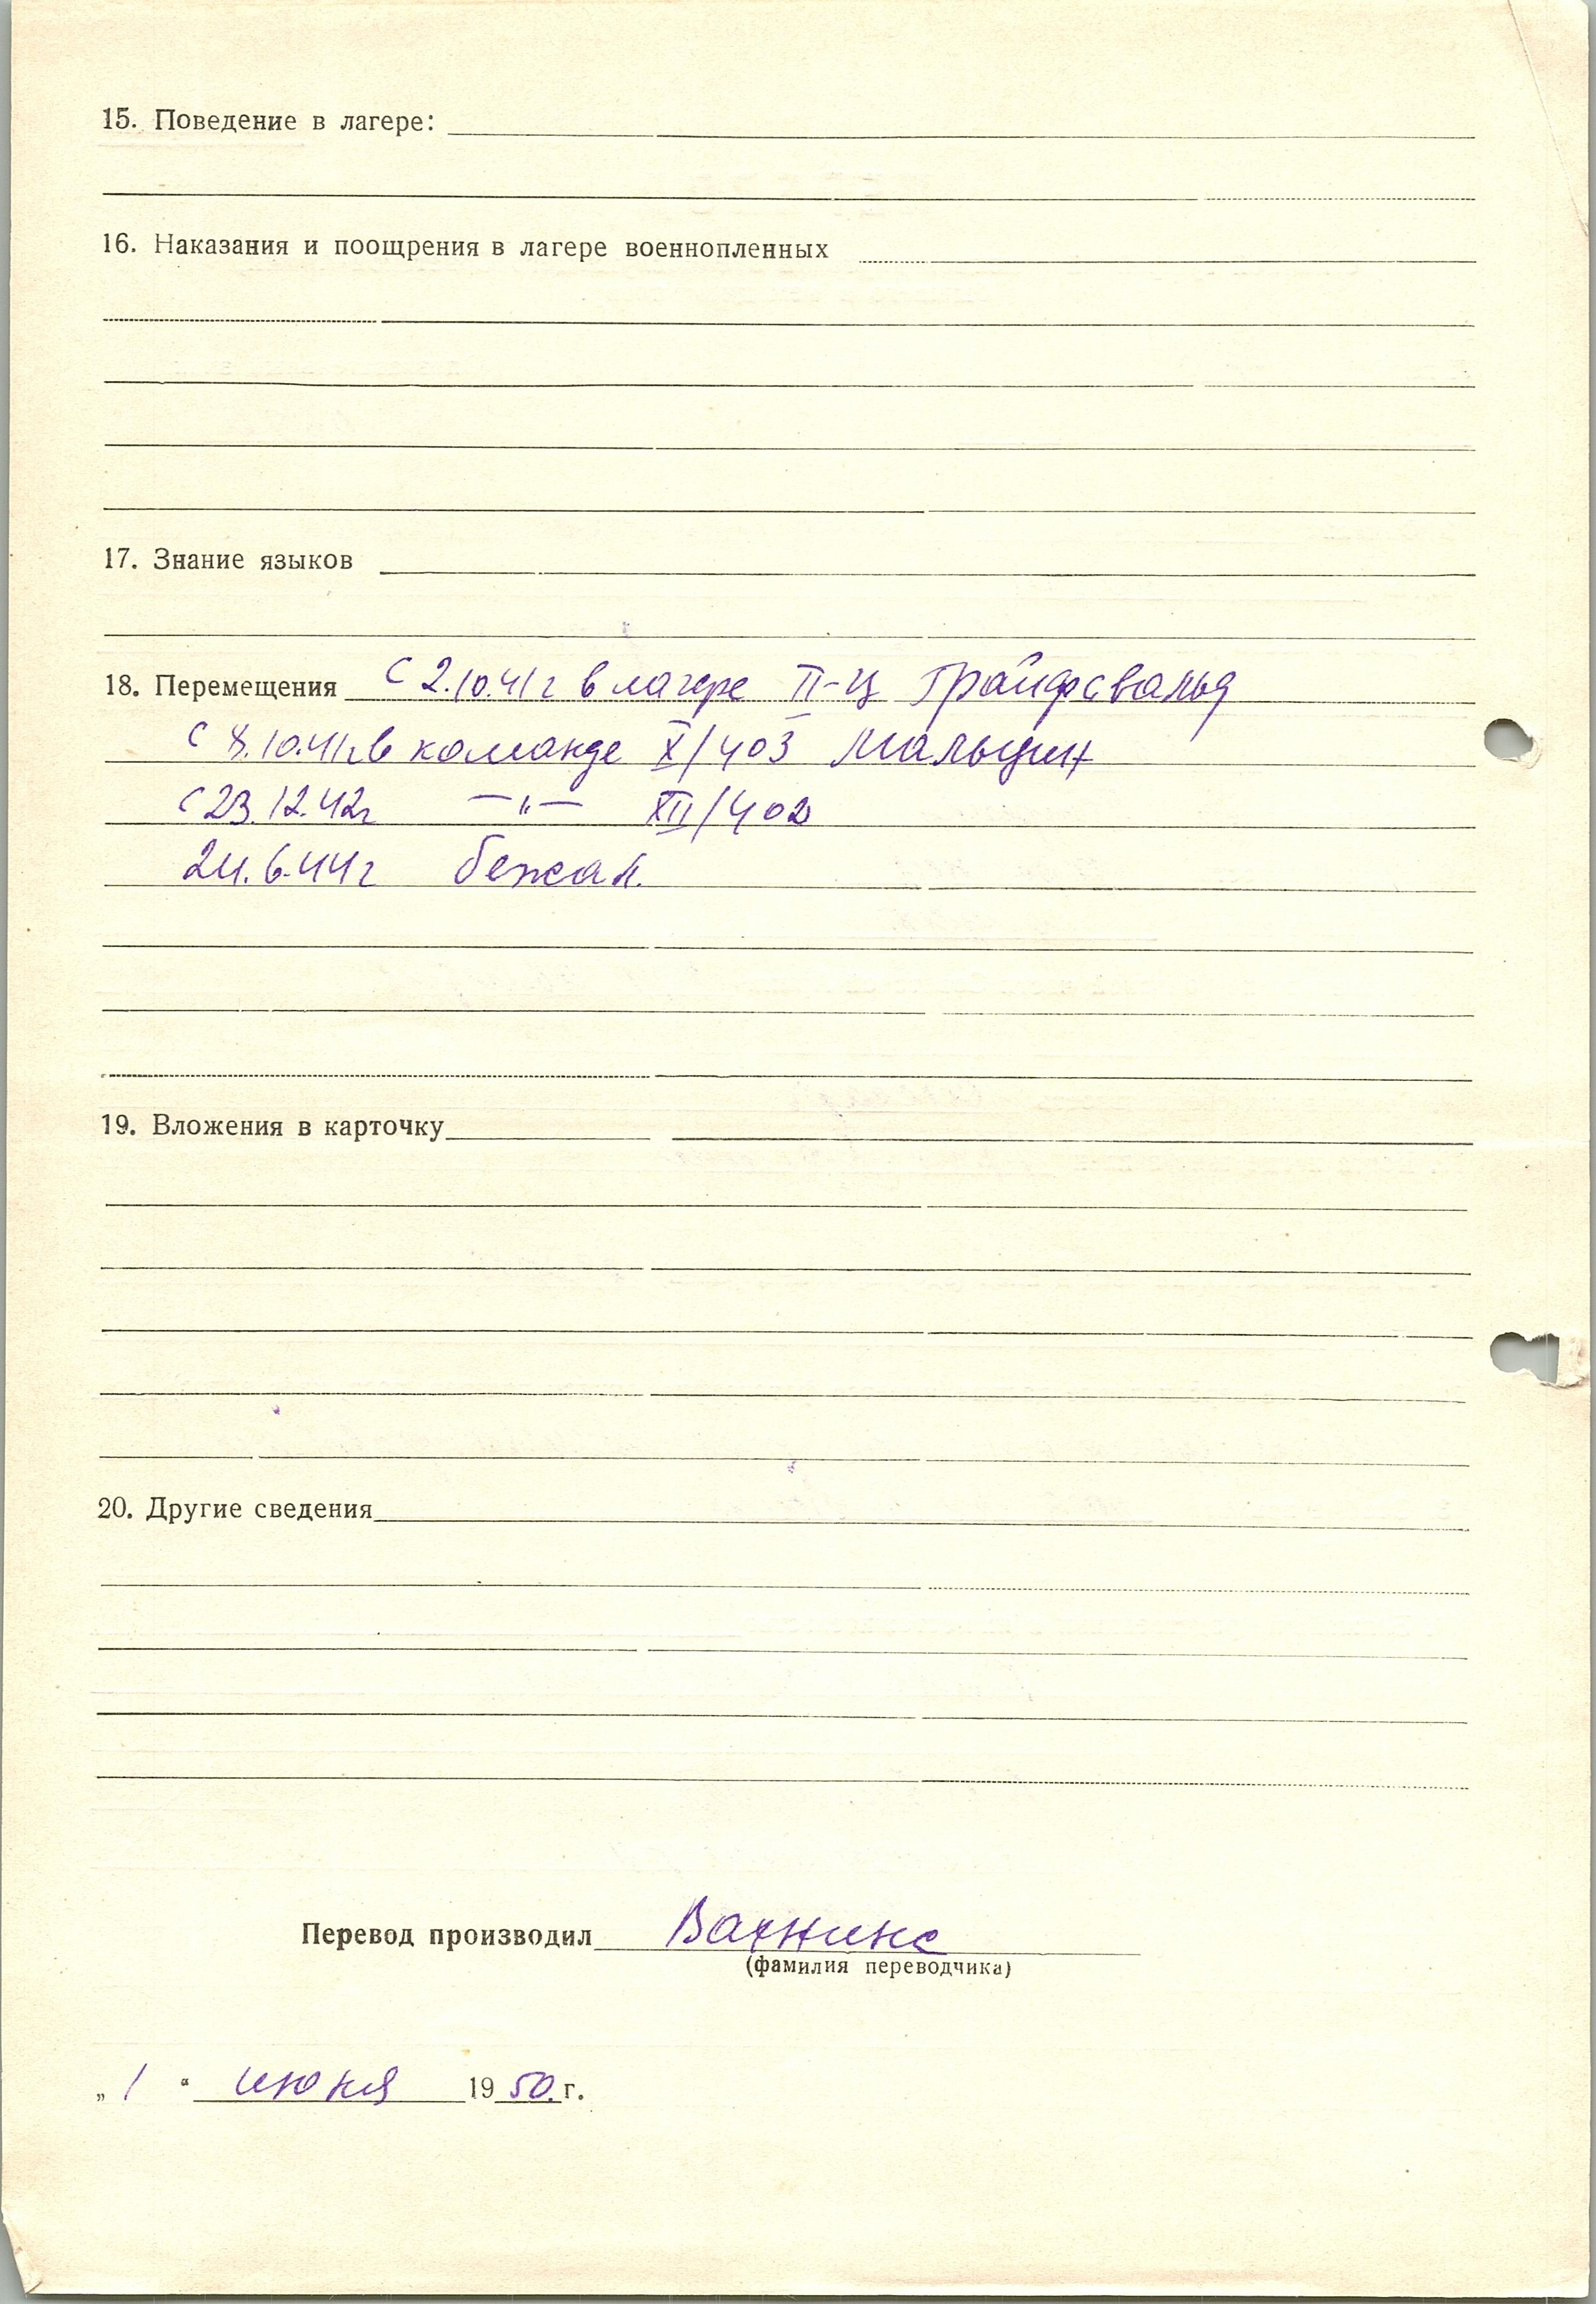 15. Поведение в лагере:
16. Наказания и поощрения в лагере военнопленных
17. Знание языков
18. Перемещения С 2.10.41г в лагере II-Ц Грайфсвальд
С 8.10.41г. в команде X/403 Мальцин
С 23.12.42г —"— XII/402
24.6.44г бежал.
19. Вложения в карточку
20. Другие сведения
Перевод производил
(фамилия переводчика)
„ 1 “ июня 1950.г.